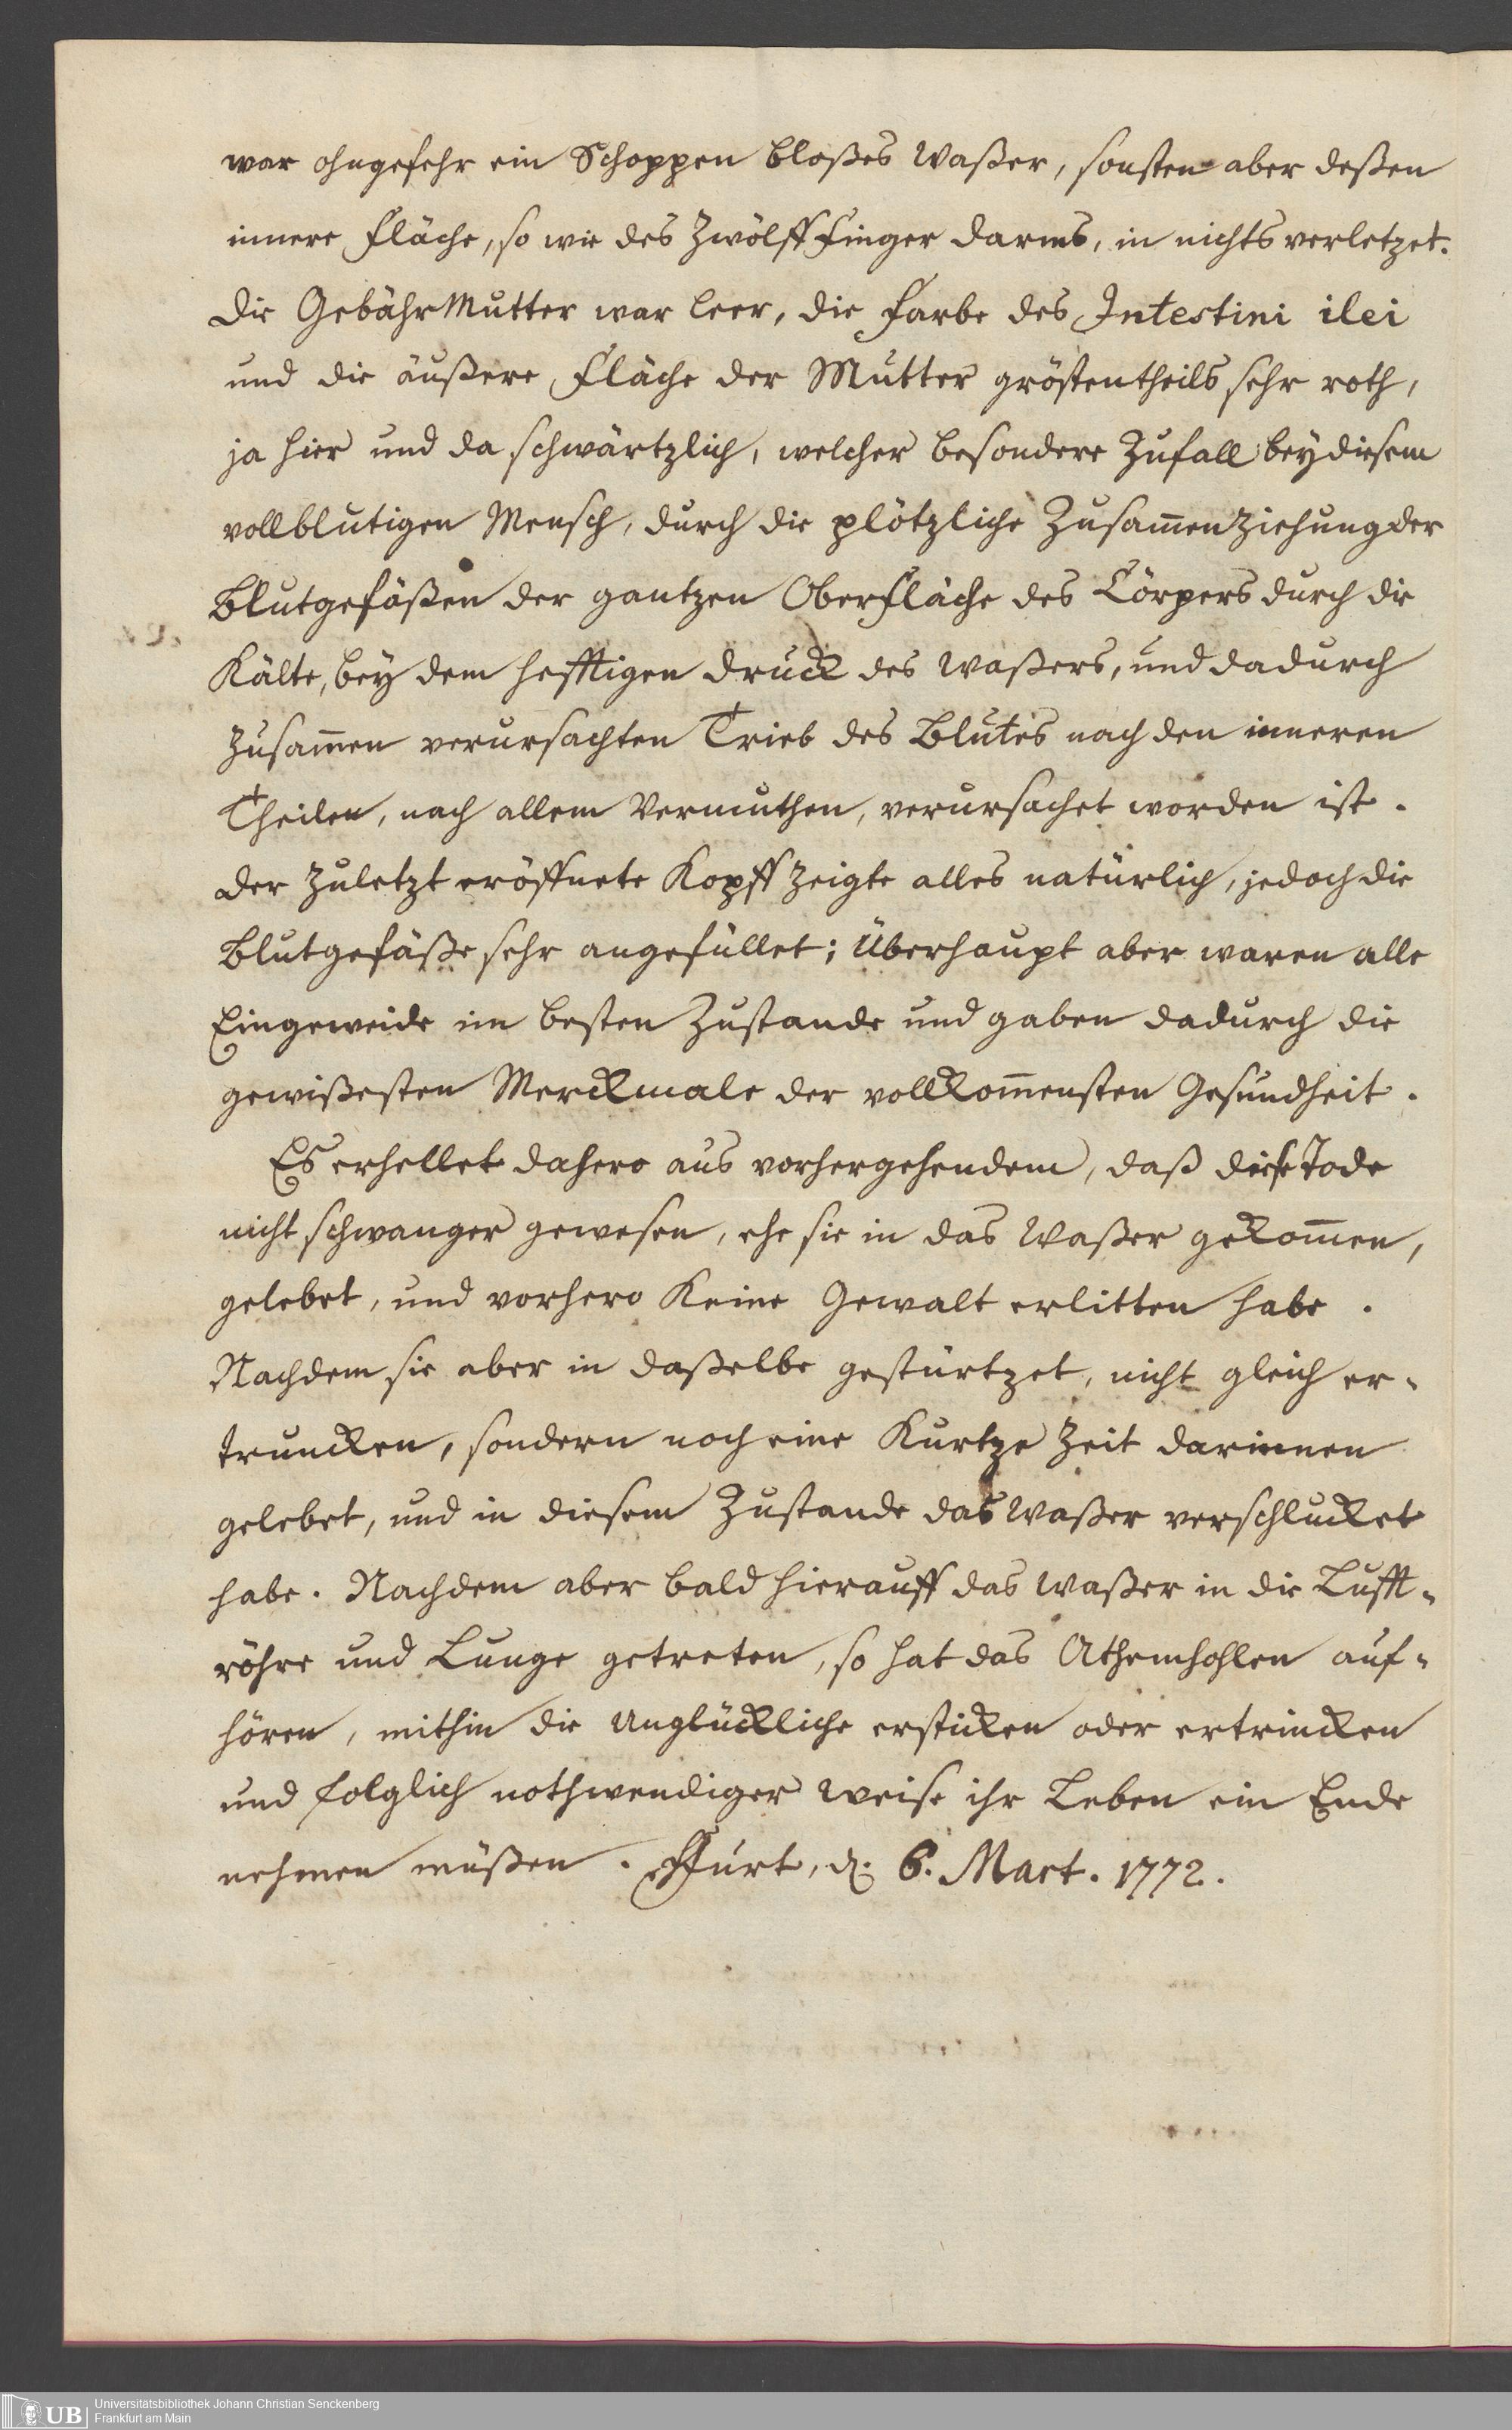 war ohngefehr ein Schoppen bloßes Waßer, sonsten aber deßen
innere Fläche, so wie des Zwölff Finger darms, in nichts verletzet.
die GebährMutter war leer, die Farbe des Intestini ilei
und die äußere Fläche der Mutter gröstentheils sehr roth,
ja hier und da schwärtzlich, welcher besondere Zufall bey diesem
vollblutigen Mensch, durch die plötzliche Zusam̄enziehung der
Blutgefäßen der gantzen Oberfläche des Cörpers durch die
Kälte, bey dem hefftigen druck des Waßers, und dadurch
zusam̄en verursachten Trieb des Blutes nach den inneren
Theilen, nach allem Vermuthen, verursachet worden ist.
der zuletzt eröffnete Kopff zeigte alles natürlich, jedoch die
Blutgefäße sehr angefüllet; Überhaupt aber waren alle
Eingeweide im besten Zustande und gaben dadurch die
gewißesten Merckmale der vollkom̄ensten Gesundheit.
Es erhellet dahero aus vorhergehendem, daß diese Tode
nicht schwanger gewesen, ehe sie in das Waßer gekom̄en,
gelebet, und vorhero keine Gewalt erlitten habe.
Nachdem sie aber in daßelbe gestürtzet, nicht gleich er-
truncken, sondern noch eine kurtze Zeit darinnen
gelebet, und in diesem Zustande das Waßer verschlucket
habe. Nachdem aber bald hierauff das Waßer in die Lufft-
röhre und Lunge getreten, so hat das Athemhohlen auf-
hören, mithin die Unglückliche ersticken oder ertrincken
und folglich nothwendiger Weise ihr Leben ein Ende
nehmen müßen. Ffurt, d. 6. Mart. 1772.
UB
Universitätsbibliothek Johann Christian Senckenberg
Frankfurt am Main